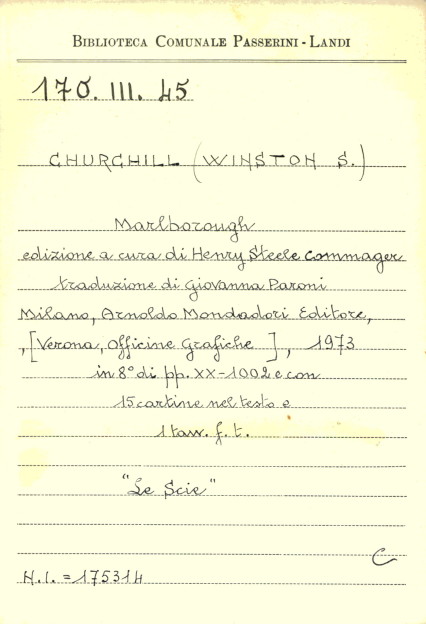 BIBLIOTECA COMUNALE PASSERINI - LANDI
170. III. 45
CHURCHILL (WINSTON S.)
Marlborough
edizione a cura di Henry Steele Commager
traduzione di Giovanna Paroni
Milano, Arnoldo Mondadori Editore,
, [Verona, Officine Grafiche ], 1973
in 8° di pp. XX-1002 e con
15 cartine nel testo e
1 tav. f. t.
"Le Scie"
C
N.I. = 175314